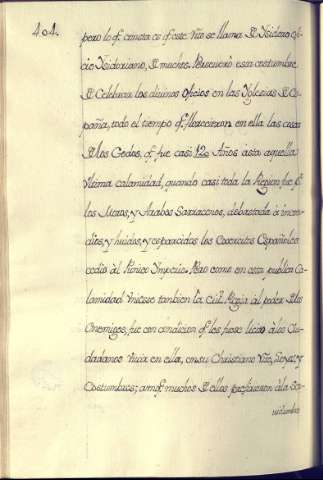 404.
pero lo q.e consta es q.e este rito se llama D.e Ysidoro ofi-
cio Ysidoriano, D.e muchos. Perseveró esta costumbre
D.e Celebrar los divinos oficios en las Yglesias D.e Es-
paña, todo el tiempo q.e florecieron en ella las cosas
D.e los Godos, q.e fue casi 120 Años asta aquella
Ultima calamidad, quando casi toda la Region fue p.r
los Moros, y Arabes Sarracenos, debastada à incen-
dios, y huidos, y esparcidos los Exercitos Españoles
cedio àl Púnico Imperio. Pero como en esta publica Ca-
lamidad viniese tambien la Ciu.d Regia al poder D.e los
Enemigos, fue con condicion q.e les fuese licito à los Ciu-
dadanos vivir en ella, en su Christiano Rito, Leyes, y
Costumbres; aunq.e muchos D.e ellos prefirieron à la Ser-
vidumbre